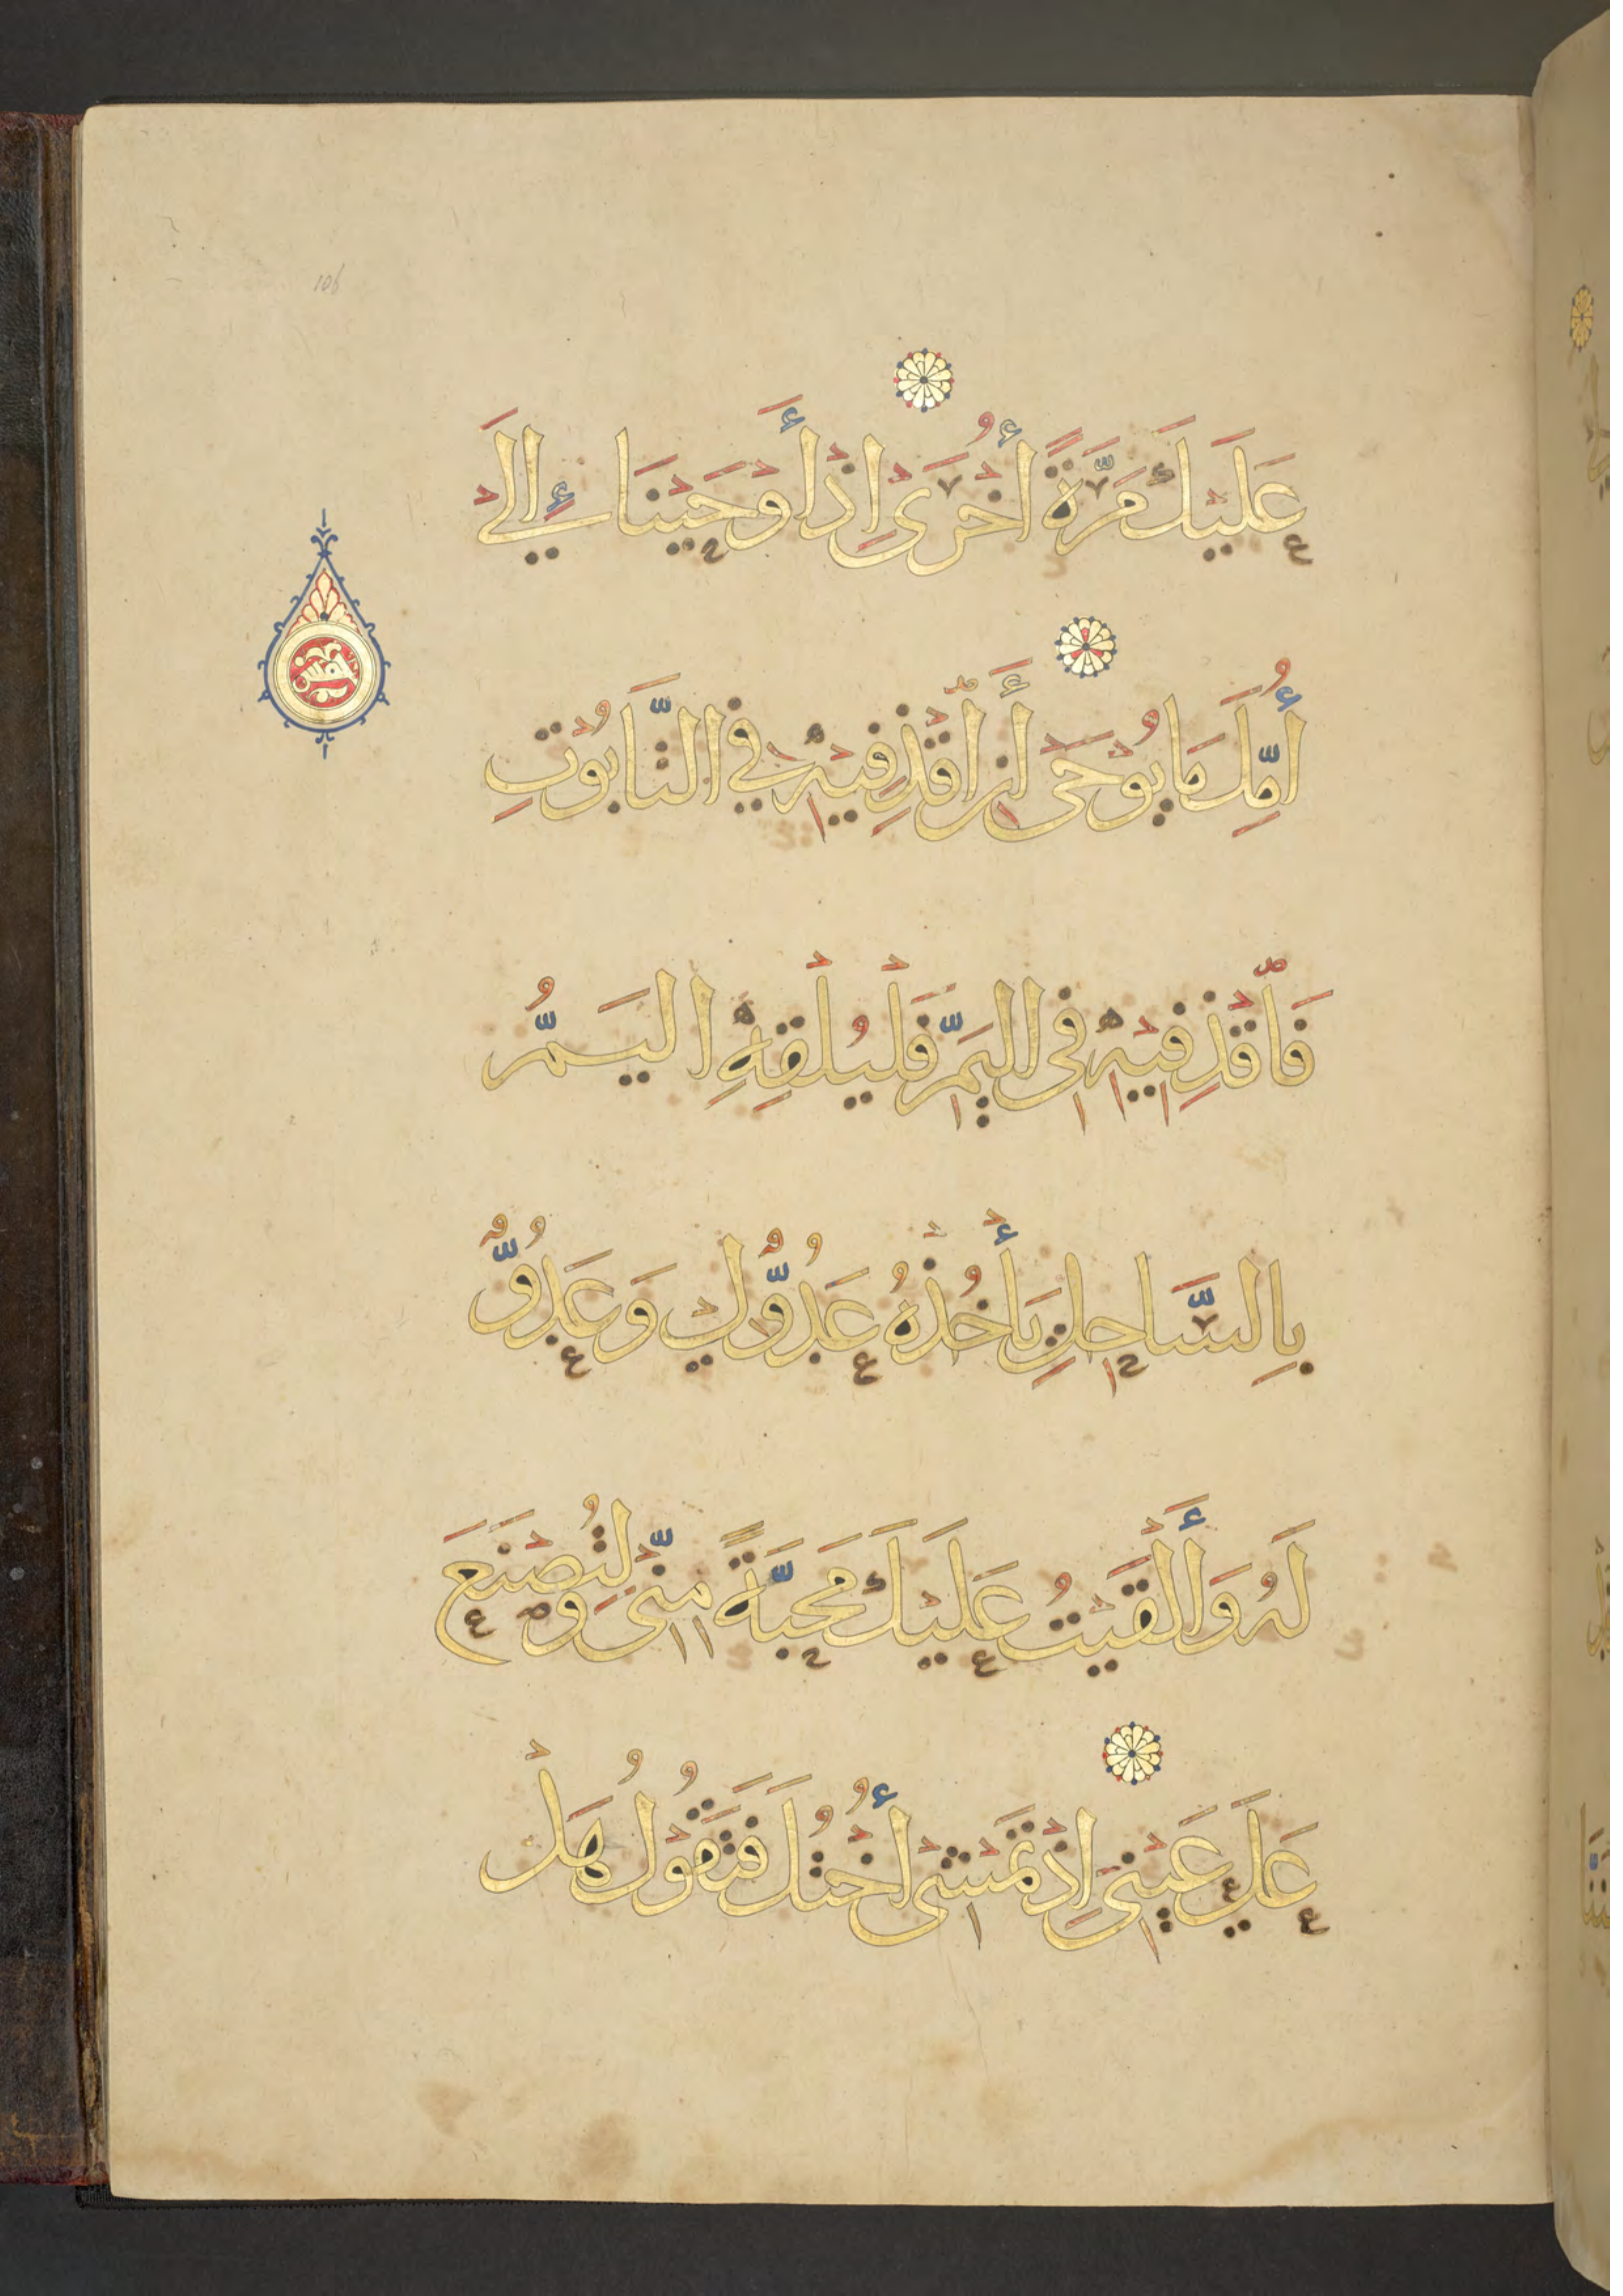 عَلَيْكَ مَرَّةً أُخْرَىٰ إِذْ أَوْحَيْنَا إِلَىٰ
أُمِّكَ مَا يُوحَىٰ أَنِ ٱقْذِفِيهِ فِي التَّابُوتِ
فَٱقْذِفِيهِ فِي الْيَمِّ فَلْيُلْقِهِ الْيَمُّ
بِالسَّاحِلِ يَأْخُذْهُ عَدُوٌّ لِي وَعَدُوٌّ
لَهُ وَأَلْقَيْتُ عَلَيْكَ مَحَبَّةً مِنِّي وَلِتُصْنَعَ
عَلَىٰ عَيْنِي إِذْ تَمْشِي أُخْتُكَ فَتَقُولُ هَلْ
106